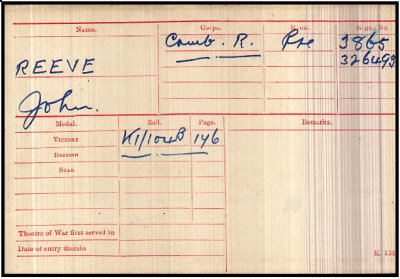 Name.
Corps.
Rank.
Regtl. No.
REEVE
Camb. R.
Pte
3865
326493
John.
Medal.
Roll.
Page.
Remarks.
VICTORY
K1/104B
146
BRITISH
STAR
Theatre of War first served in
Date of entry therein